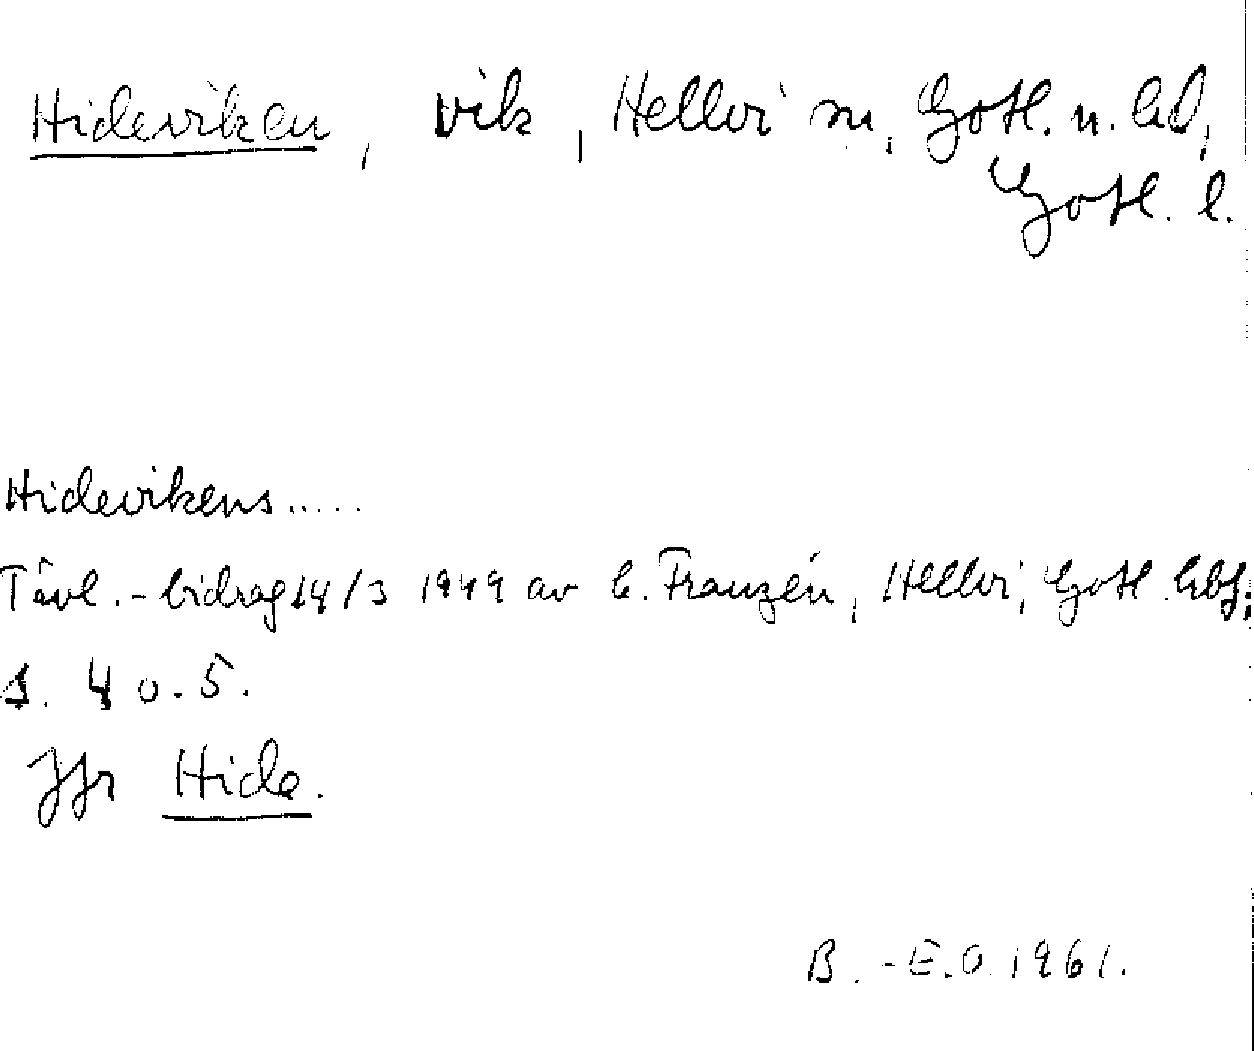 Hideviken, vik, Hellvi sn, Gotl. n. hd,
Gotl. l.
Hidevikens.....
Tävl.-bidrag 14/3 1949 av C. Franzén, Hellvi, Gotl.
s. 4 o. 5.
Jfr Hide.
B.-E.O. 1961.